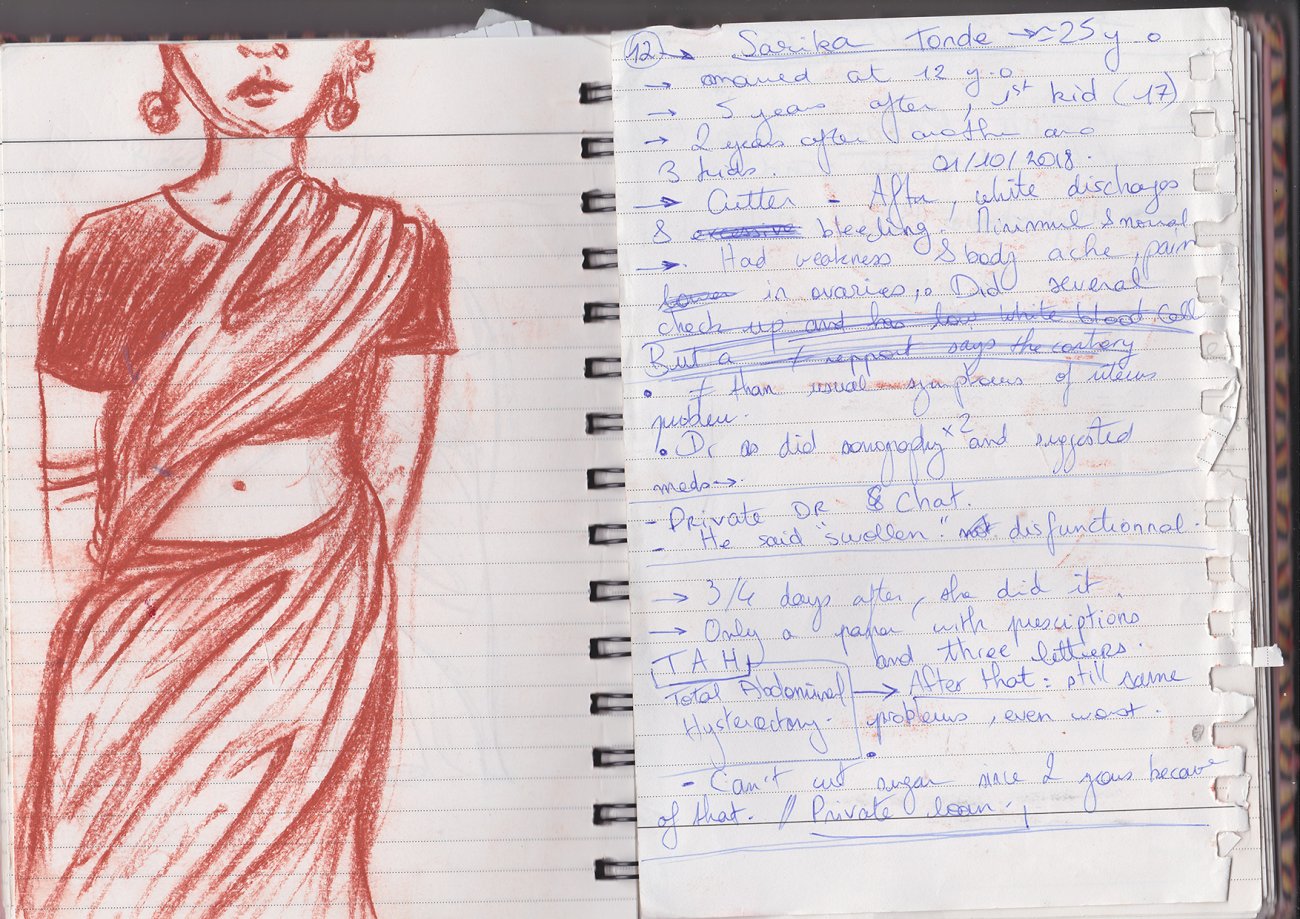 12 → Sarika Tonde → ~25 y.o
→ maried at 12 y.o
→ 5 years after, 1st kid (17)
→ 2 years after another and
3 kids. 01/10/2018.
→ Cutter - After, white discharges
& excessive bleeding. Minimul & normal
→. Had weakness & body ache, pain
in ovaries,. Did several
check up and has low white blood cell
But a ≠ repport says the contrery
• ≠ than usual symptoms of uterus
problem.
• Dr as did sonography x2 and suggested
meds→.
- Private DR & Chat.
- He said "swollen". not disfunctionnal.
→ 3/4 days after, she did it.
→ Only a paper with presciptions
and three letters.
TAH
Total Abdominal → After that: still same
Hysterectomy. problems, even worst.
- Can't cut sugar since 2 years because
of that. // Private loan,